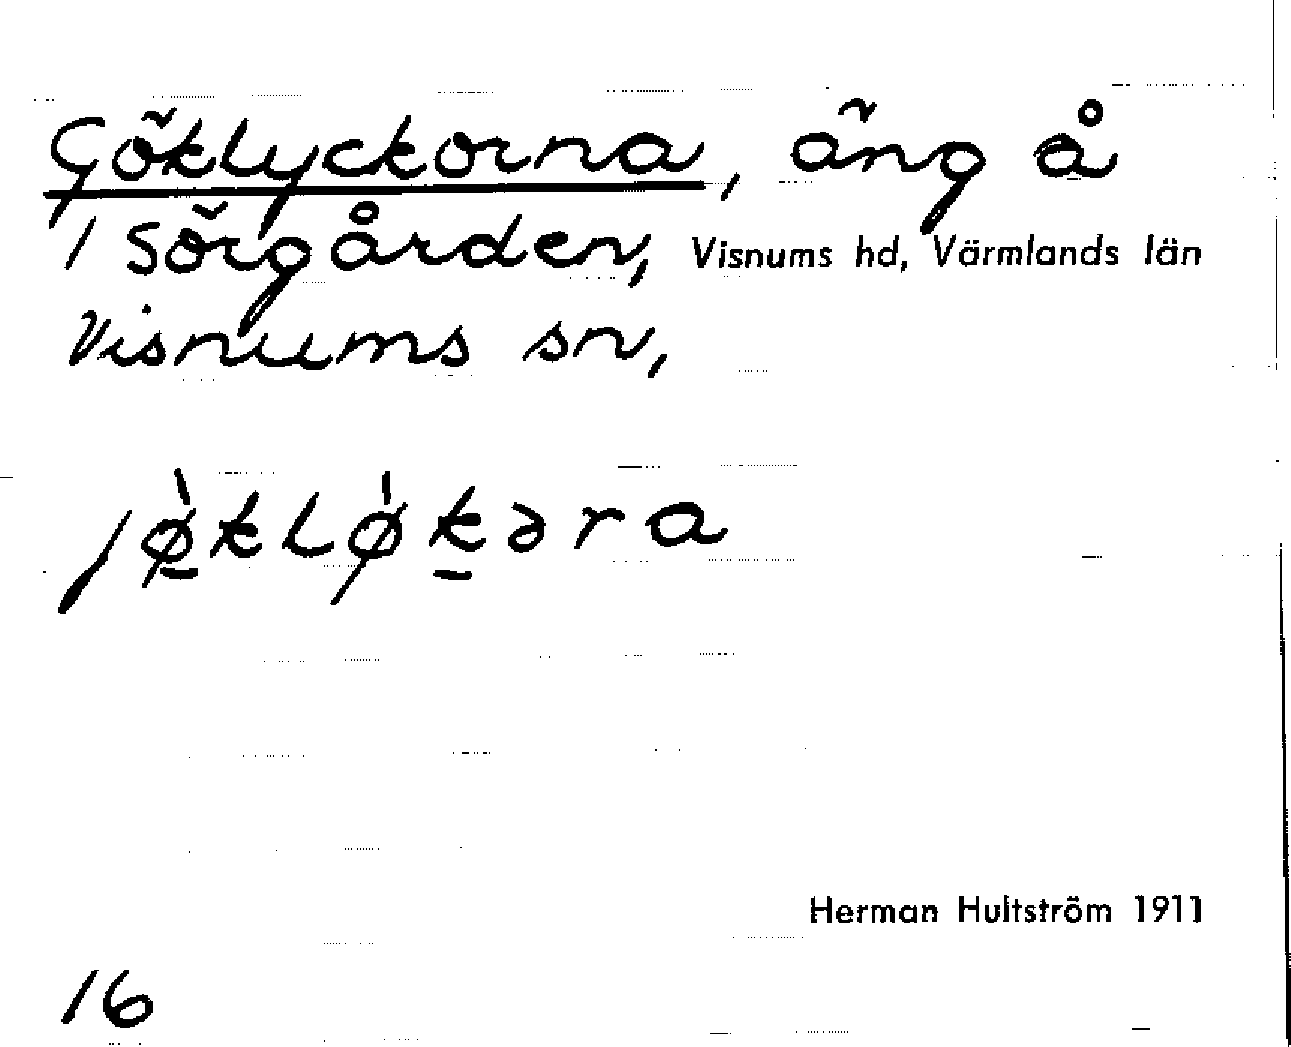 Göklyckorna, äng å
1 Sörgården, Visnums hd, Värmlands län
Visnums sn,
jø̠̀klø̀k̠əra
Herman Hultström 1911
16